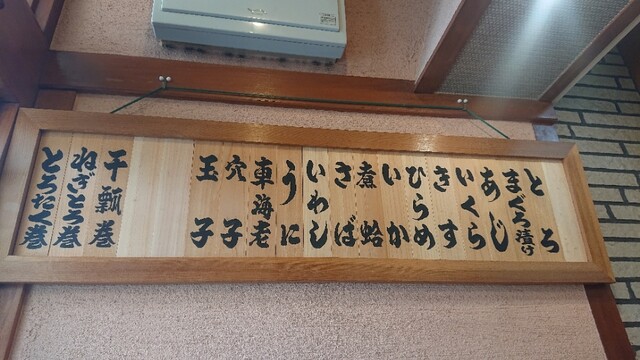 とろ
まぐろ漬け
あじ
いくら
きす
ひらめ
いか
煮蛤
さば
いわし
うに
車海老
穴子
玉子
干瓢巻
ねぎとろ巻
とろたく巻